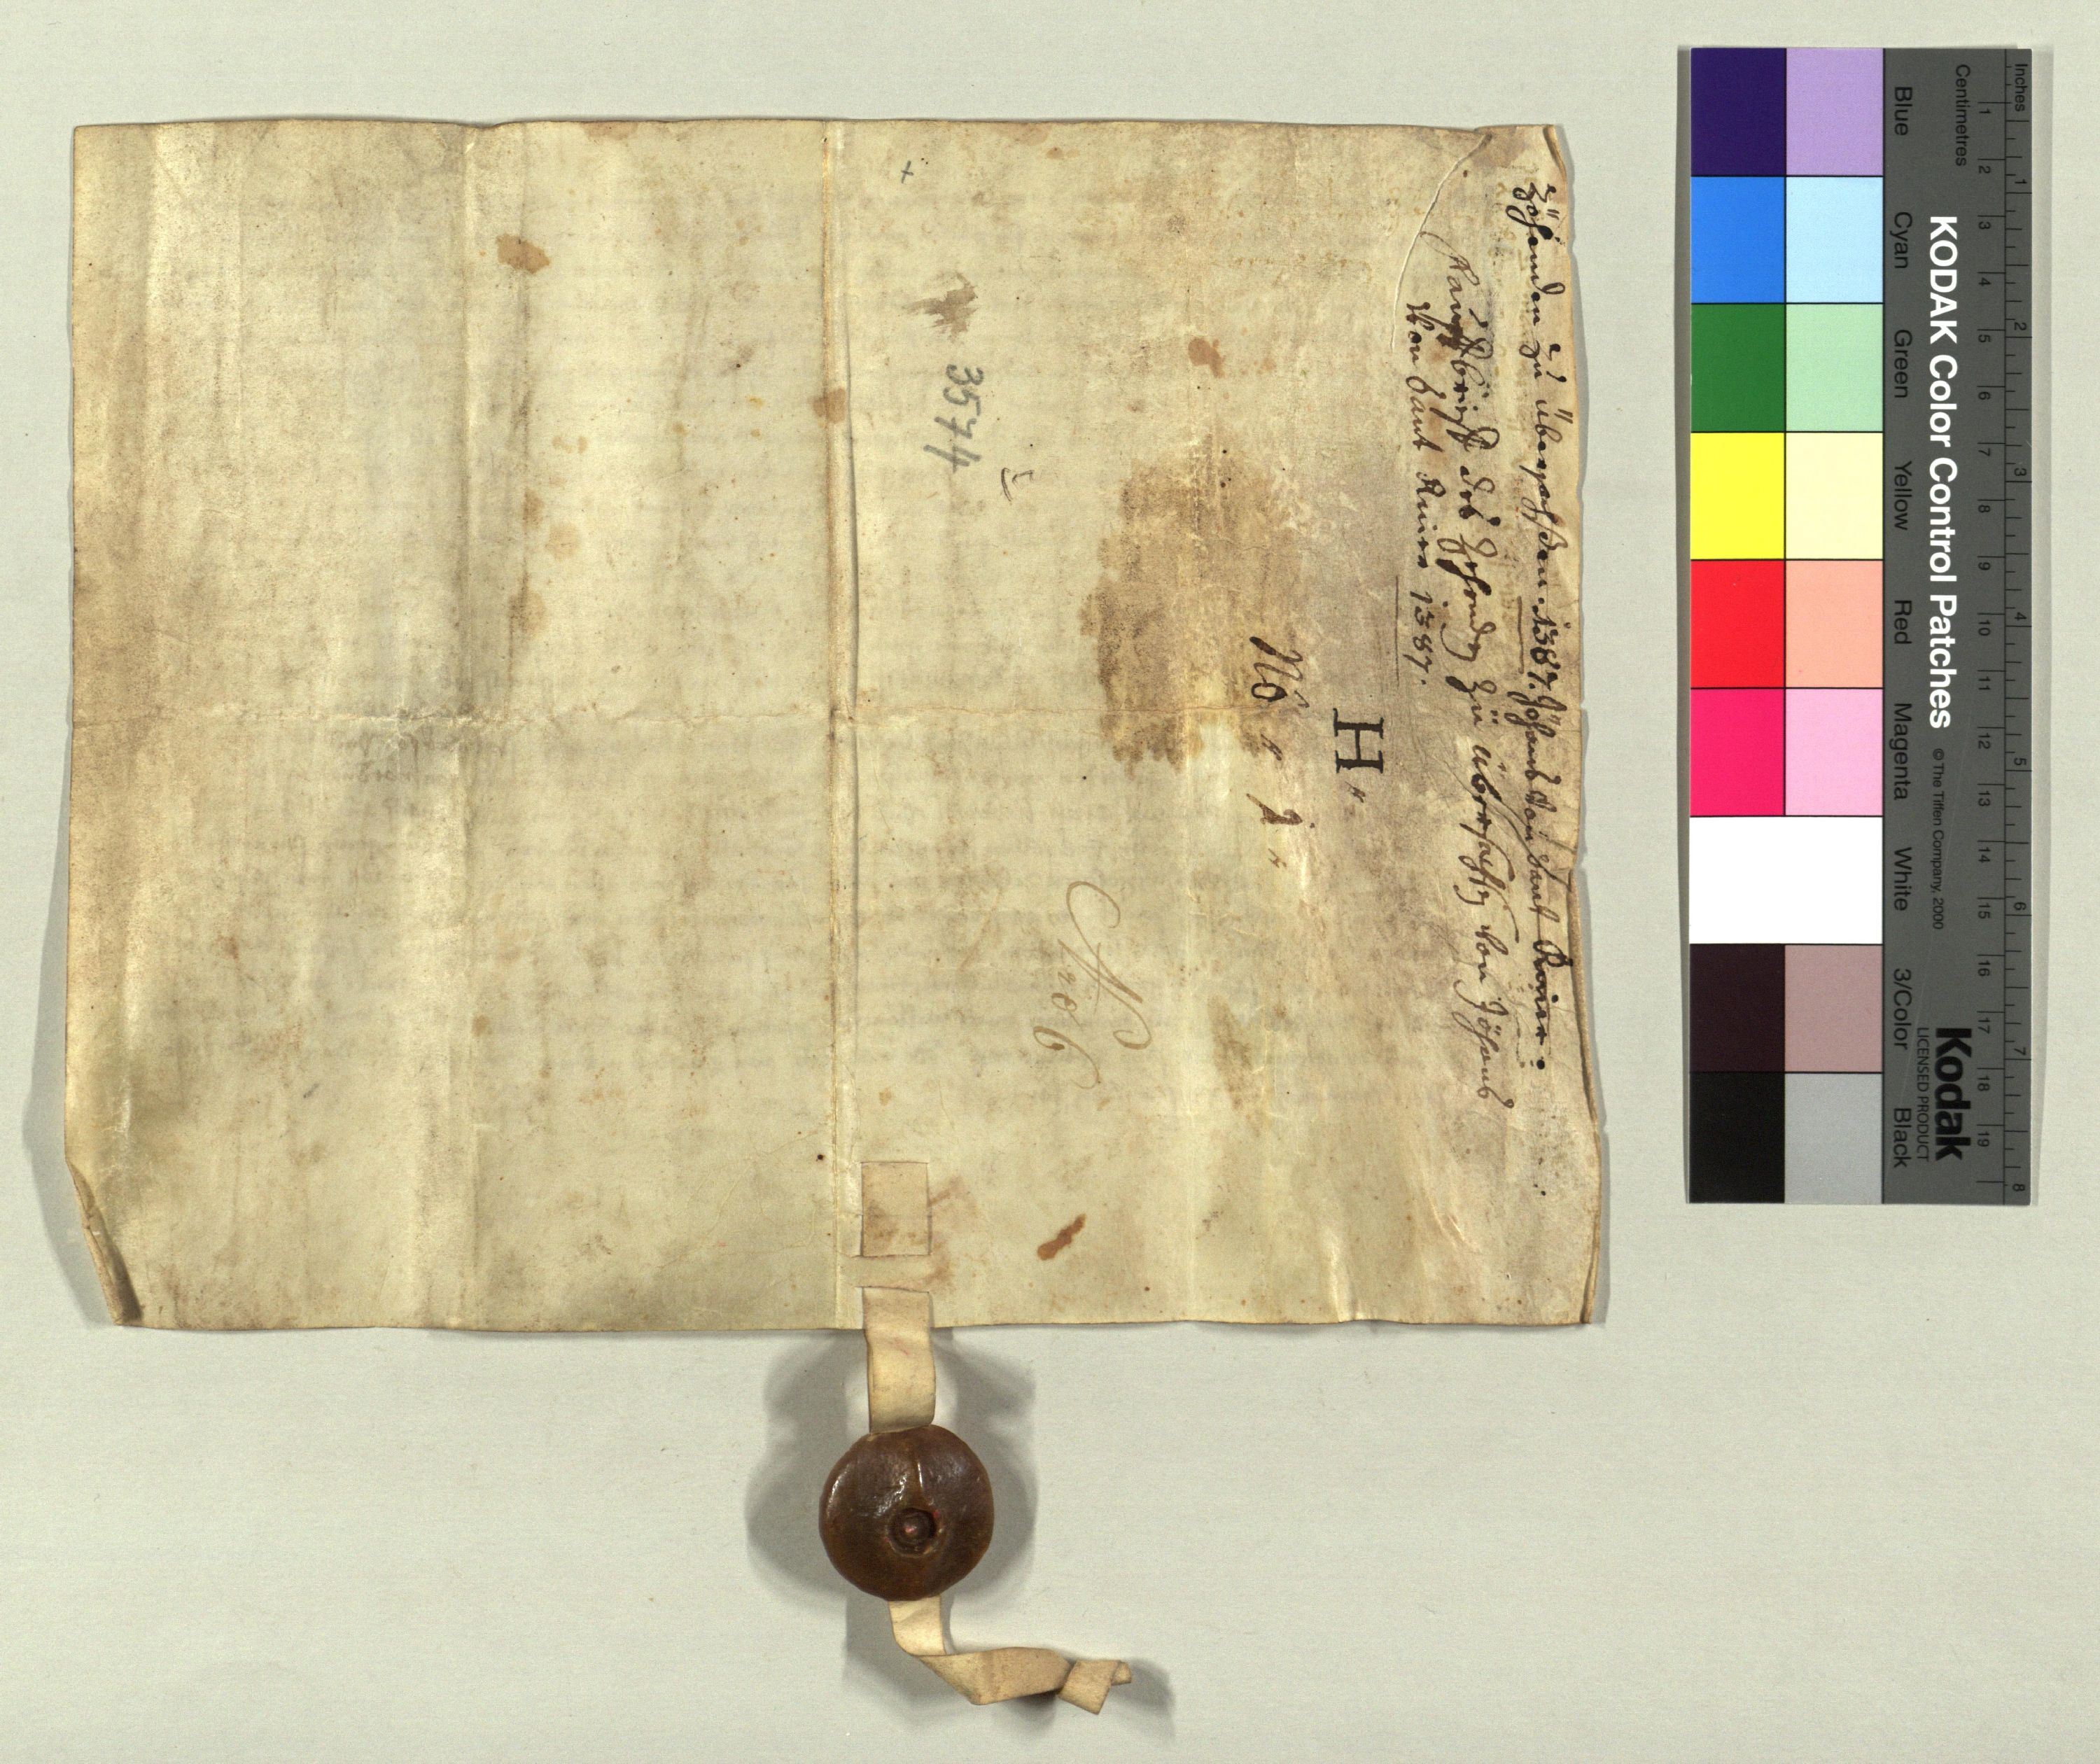 Zöhenden zu überachsen. 1387. Johans von Sant
Kauffbrieff des Zehenden Zu überachsen von Johans
von Sant 1387.
H
No 2
No 6
3574
+
KODAK Color Control Patches
© The Tiffen Company, 2000
Kodak
LICENSED PRODUCT
Inches
1 2 3 4 5 6 7 8
Centimetres
1 2 3 4 5 6 7 8 9 10 11 12 13 14 15 16 17 18 19
Blue
Cyan
Green
Yellow
Red
Magenta
White
3/Color
Black